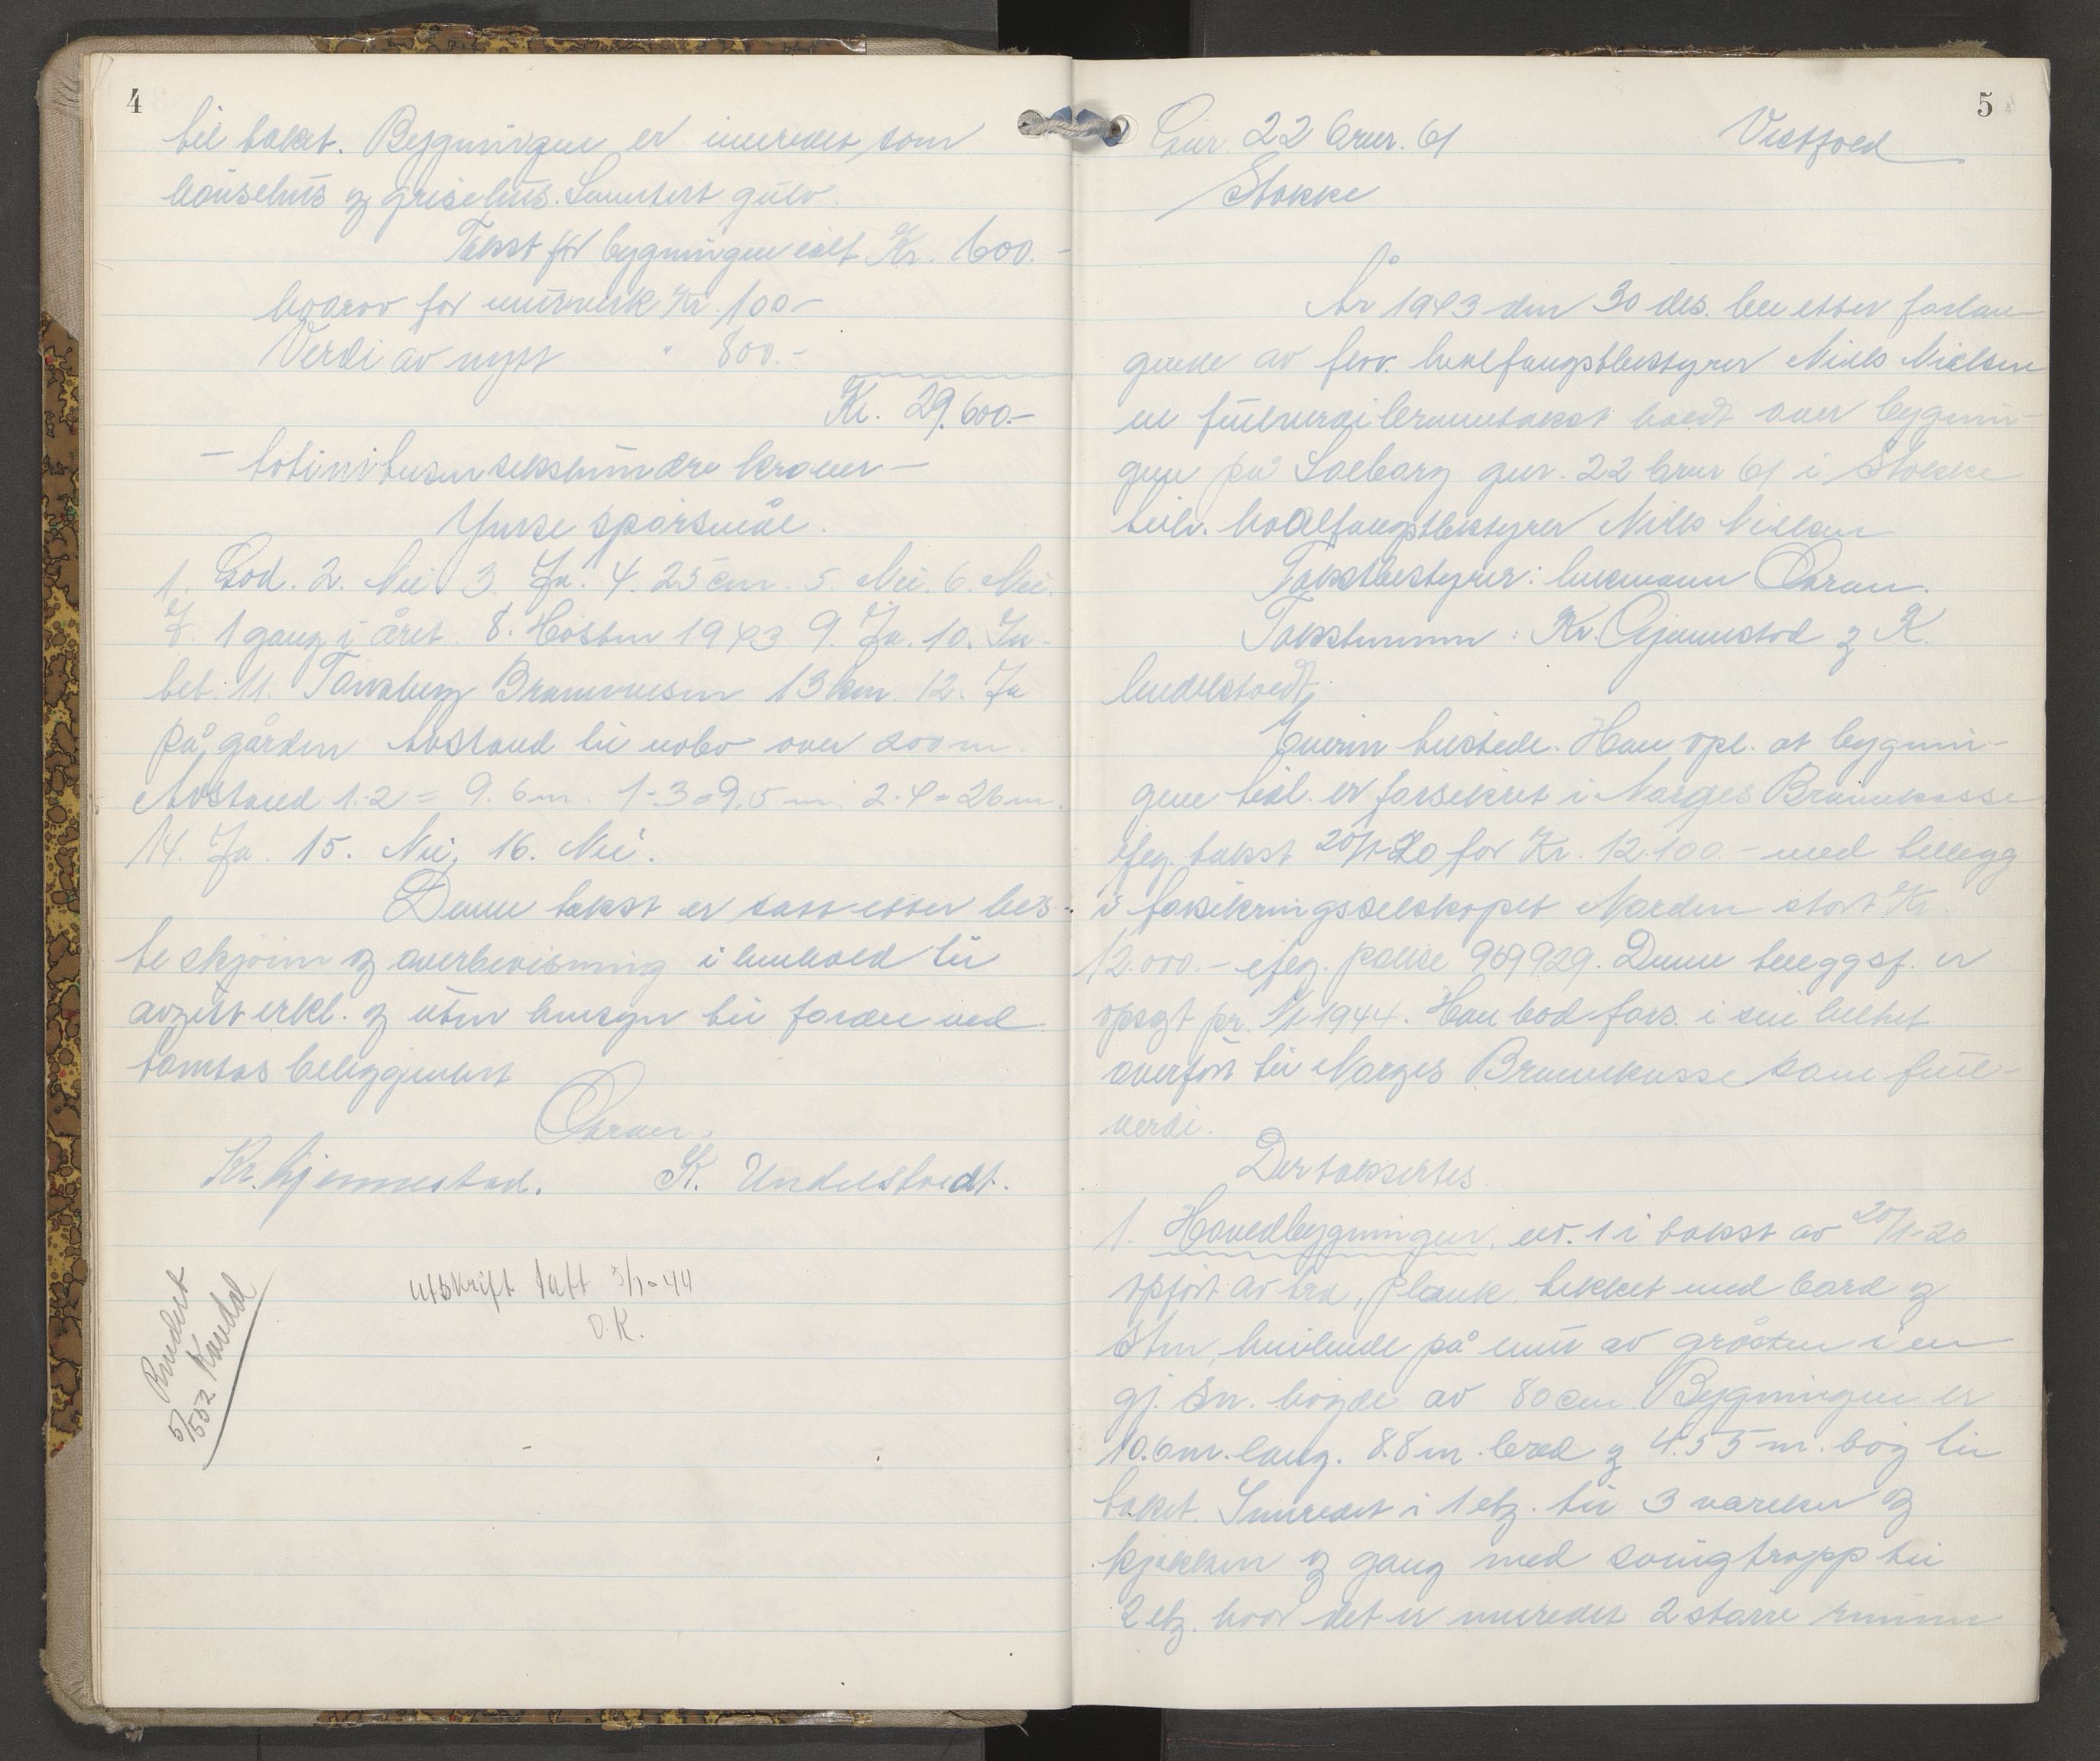 4
til taket. Bygningen er innredet som
hønsehus og grisehus. Sementert gulv.
Takst för bygningen ialt Kr. 1600.-
hvorav for murverk Kr. 100-
Verdi av nytt " 800.-
Kr. 29.600.-
- totinitusen sekshundre kroner -
Ymse spörsmål.
1. God. 2. Nei 3. Ja. 4. 25 cm. 5. Nei. 6. Nei.
7. 1 gang i året. 8. Hösten 1943 9. Ja. 10. In-
tet. 11. Tönsberg Brannvesen 13 km. 12. Ja
på gården Avstand til nabo over 200 m.
Avstand 1-2 = 9.6m. 1-3=9,5 m. 2-4=26m.
14. Ja. 15. Nei, 16. Nei.
Denne takst er satt etter bes-
te skjönn og overbevisning i henhold til
avgitt erkl. og uten hensyn til fordel ved
tomtas beliggenhet
Oaran.
Kr. Gjennestad. K. Undelstvedt.
Utskrift tatt 3/1-44
O.K.
5/552
5
Gnr. 22 bnr. 61 Vestfold
Stokke
År 1943 den 30 des. ble etter forlan-
gende av forv. hvalfangstbestyrer Nills Nielsen
en fullverdibranntakst holdt over bygnin-
gene på Solberg gnr. 22 bnr 61 i Stokke
tilh. hvalfangstbestyrer Nills Nielsen
Takstbestyrer: lensmann Oaran.
Takstmenn: Kr. Gjennestad og K.
Undelstvedt.
Eieren tilstede. Han opl. at bygnin-
gene tidl. er forsikret i Norges Brannkasse
ifög. takst 20/1-20 for Kr. 12.100.- med tillegg
i forsikringsselskapet Norden stort Kr.
12.000.- ifög. police 969929. Denne tilleggsf. er
opsagt pr. 1/1 1944. Han bad fors. i sin helhet
overfört til Norges Brannkasse som full-
verdi.
Der taksertes
1. Hovedbygningen, litr. 1 i takst av 20/1-20
opfört av tre, plank, tekket med bord og
sten, hvilende på mur av gråsten i en
gj.sn. höyde av 80 cm. Bygningen er
10.6m. lang. 8.8m. bred og 4.55 m. höy til
taket. Innredet i 1 etg. til 3 værelser og
kjökken og gang med svingtrapp til
2 etg. hvor det er innredet 2 större rum